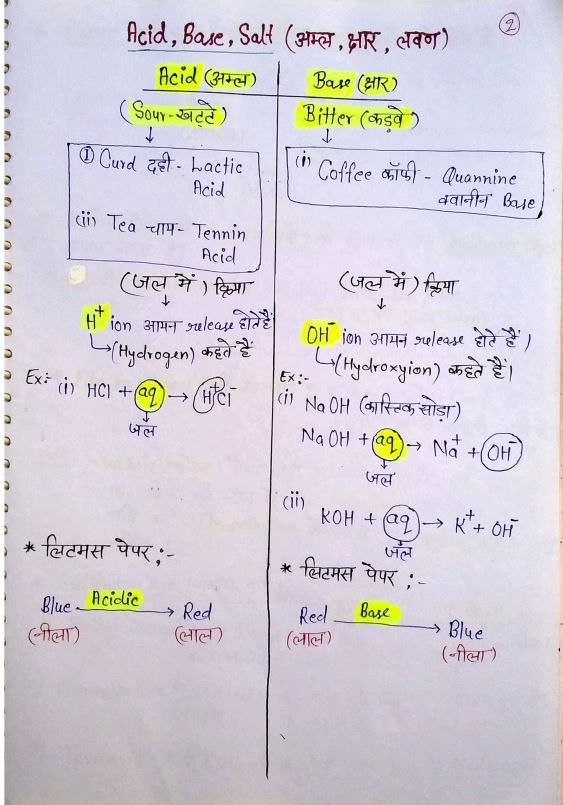 2
Acid, Base, Salt (अम्ल, क्षार, लवण)
Acid (अम्ल)
(Sour-खट्टे)
① Curd दही - Lactic
Acid
(ii) Tea चाय - Tennin
Acid
(जल में) क्रिया
H⁺ ion आयन release होते हैं
(Hydrogen) कहते हैं
Ex:- (i) HCl + aq → H⁺Cl⁻
जल
* लिटमस पेपर ;-
Blue Acidic → Red
(नीला) (लाल)
Base (क्षार)
Bitter (कड़वे)
(i) Coffee कॉफी - Quannine
क्वानीन Base
(जल में) क्रिया
OH⁻ ion आयन release होते हैं।
(Hydroxyion) कहते हैं।
Ex:-
(i) NaOH (कास्टिक सोड़ा)
NaOH + aq → Na⁺ + OH⁻
जल
(ii)
KOH + aq → K⁺ + OH⁻
जल
* लिटमस पेपर ;-
Red Base → Blue
(लाल) (नीला)